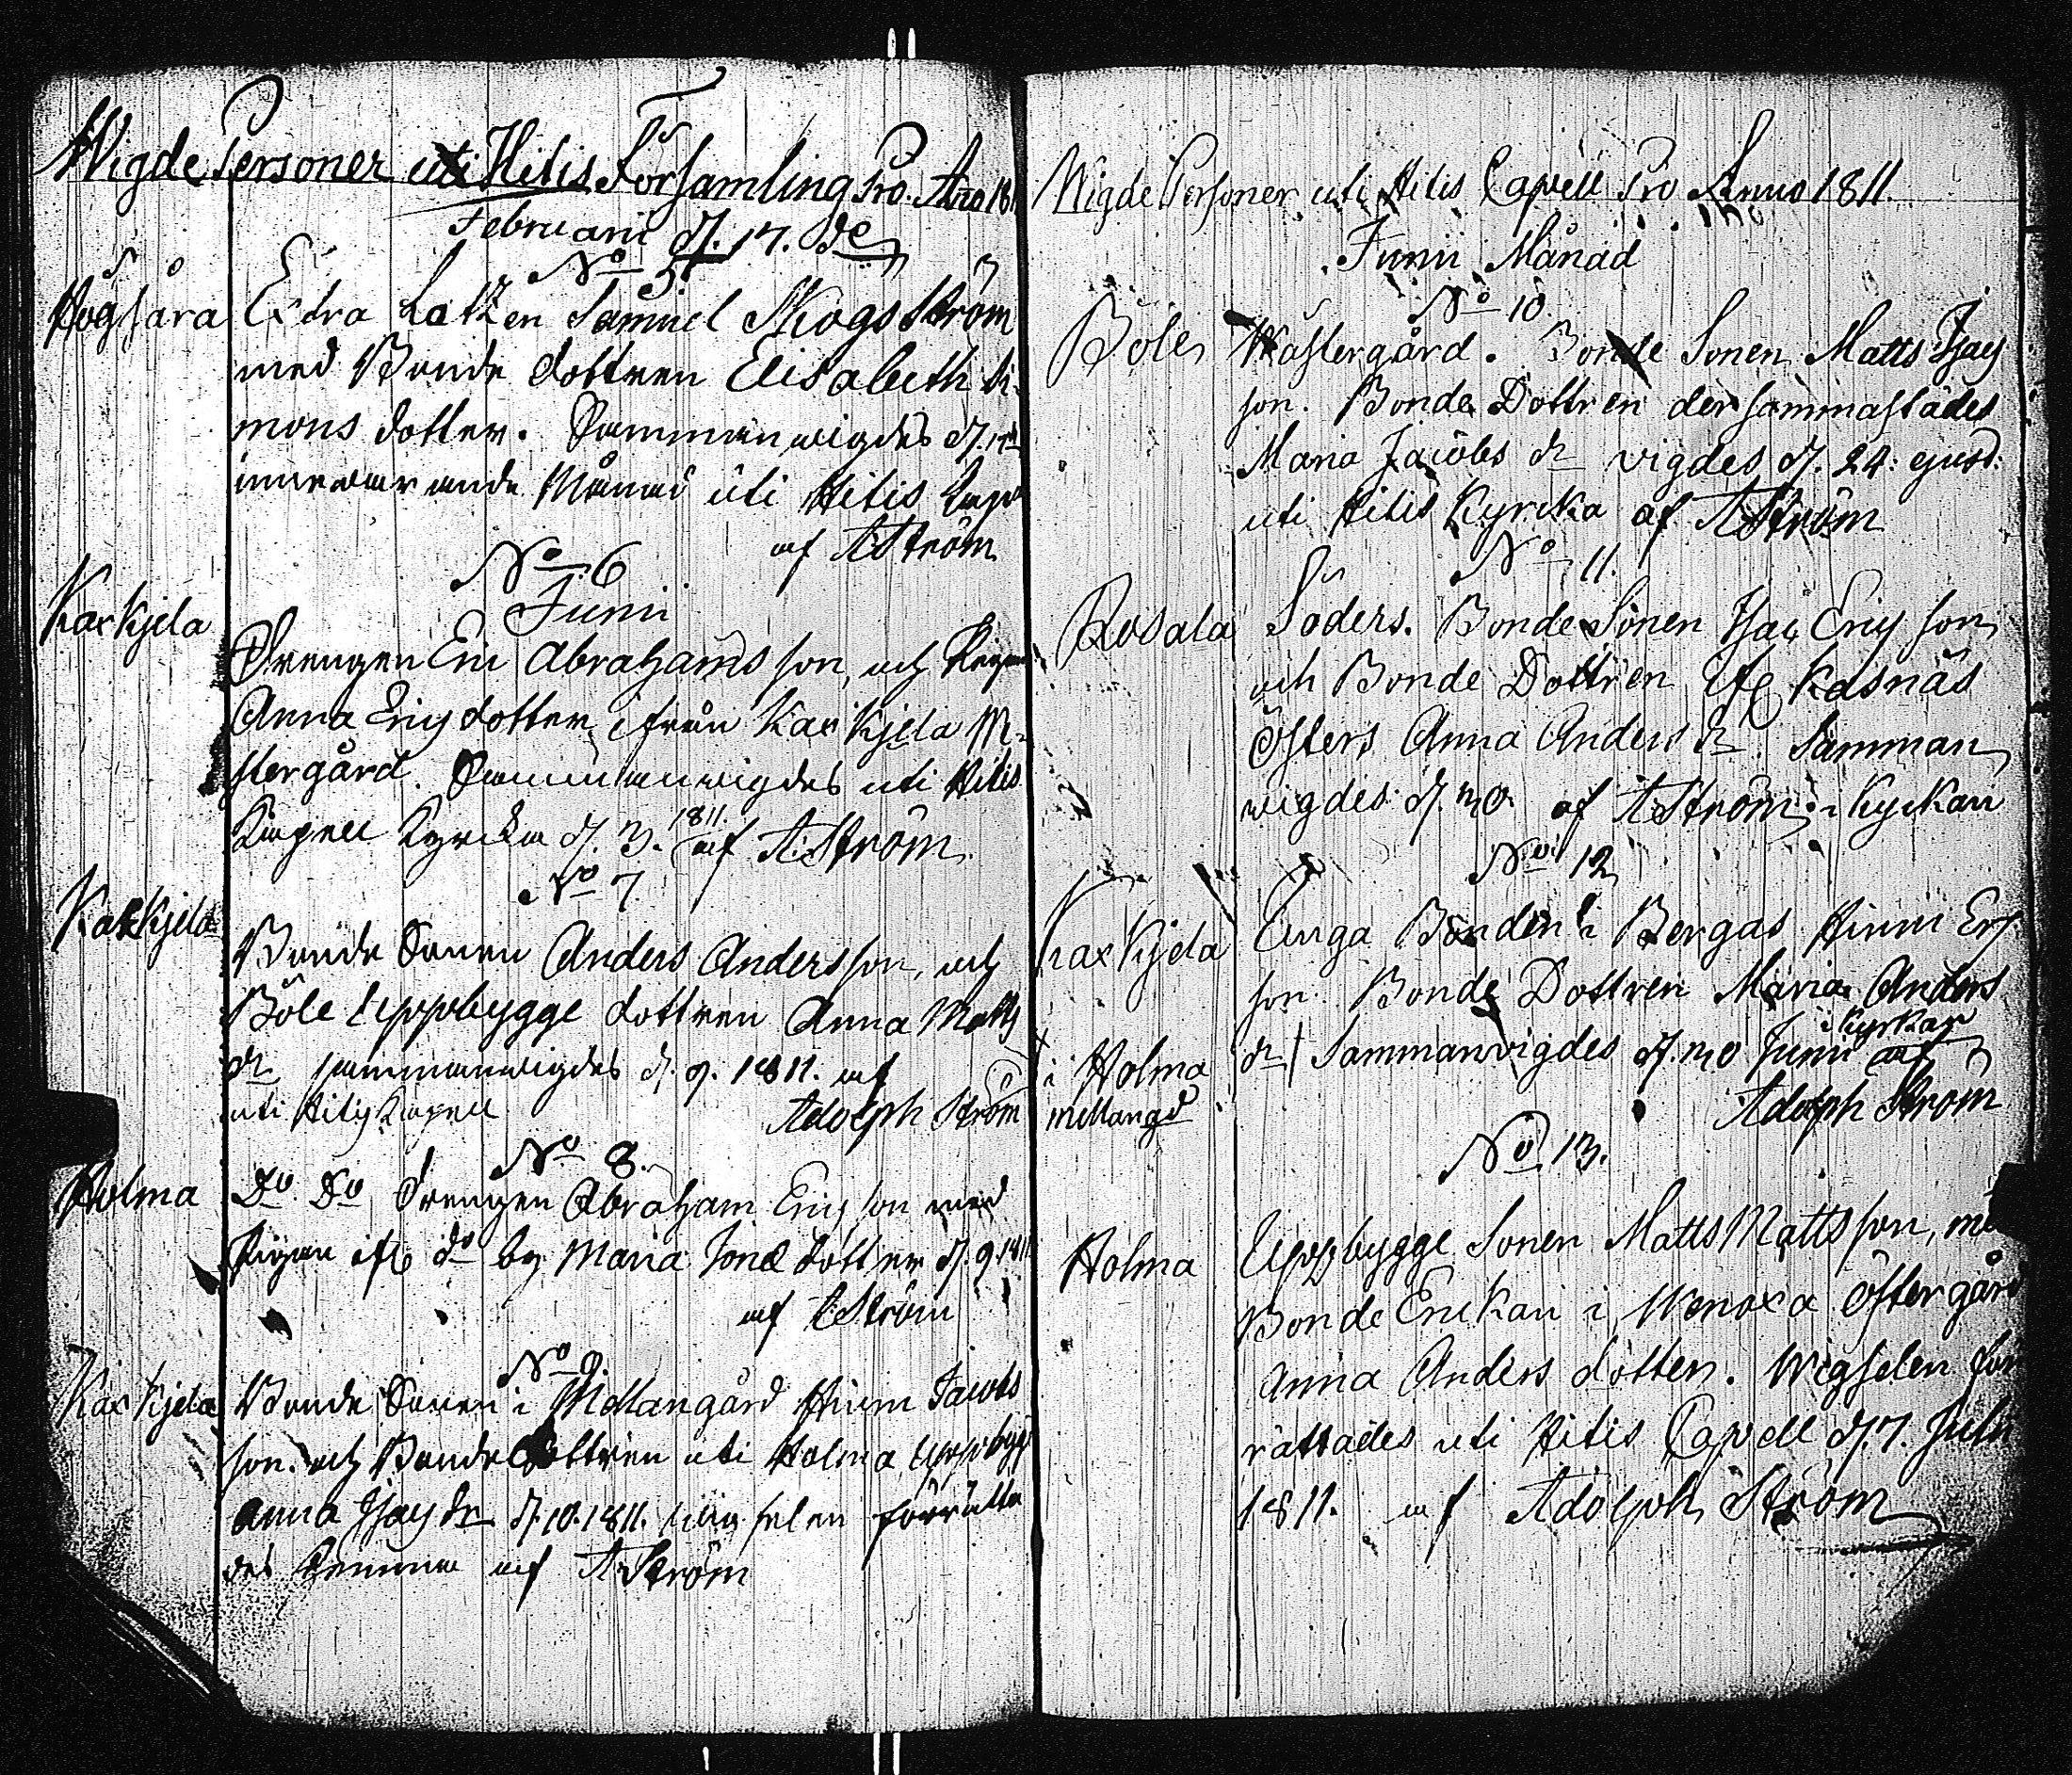 Wigde Personer uti Hitis Församling Pro. Ano 181
Februarii d. 17. de
No 5
Högsåra Extra Lotzen Samuel Skogström
med Bonde dottren Elisabeth Si-
mons dotter. Sammanwigdes d. 17de
innewarande Månad uti Hitis Cap
af A Ström
No 6
Junii
Kaxkjela
Drengen Eric Abrahams son, och Pigan
Anna Erics dotter ifrån Kaxkjela W-
stergård. Sammanwigdes uti Hitis
Capell Kyrcka d. 3. 1811. af A. Ström
No 7.
Kaxkjela
Bonde Sonen Anders Andersson, och
Böle Uppbygge dottren Anna Matts
dr sammanwigdes d. 9. 1811. af
uti Hitis Capell Adolph Ström
No 8.
Holma Do Do Drengen Abraham Erics son med
Pigan ifr do by Maria Jons dotter d. 9 1811
af A Ström
No 9
Kaxkjela Bonde Sonen i Mellangård Hinric Jacobs
son. och Bonde Dottren uti Holma Uppbygg
Anna Isacs dr d. 10. 1811. wigselen förrätta
des hemma af A Ström
Wigde Personer uti Hitis Capell Pro Anno 1811.
Junii Månad
No 10.
Böle Wästergård. Bonde Sonen Matts Isacs
son. Bonde Dottren dersammastädes
Maria Jacobs dr vigdes d. 24. ejusd:
uti Hitis Kyrcka af A Ström
No 11.
Rosala Söders. Bonde Sonen Isac Erics son
och Bonde Dottren ifr Kasnäs
Östers Anna Anders dr Samman
wigdes d. 30 af A Ström i Kyrkan
No 12
Kaxkjela Unga Bonden i Bergas Hinric Ers
son. Bonde Dottren Maria Anders
i Kyrkan
i Holma dr Sammanvigdes d. 30 Junii af
mellangd Adolph Ström
No 13.
Holma Uppbygge Sonen Matts Mattsson, me
Bonde Enckan i Wenoxa Östergård
Anna Anders dotter. Wigselen för
rättades uti Hitis Capell d. 7. Julii
1811. af Adolph Ström